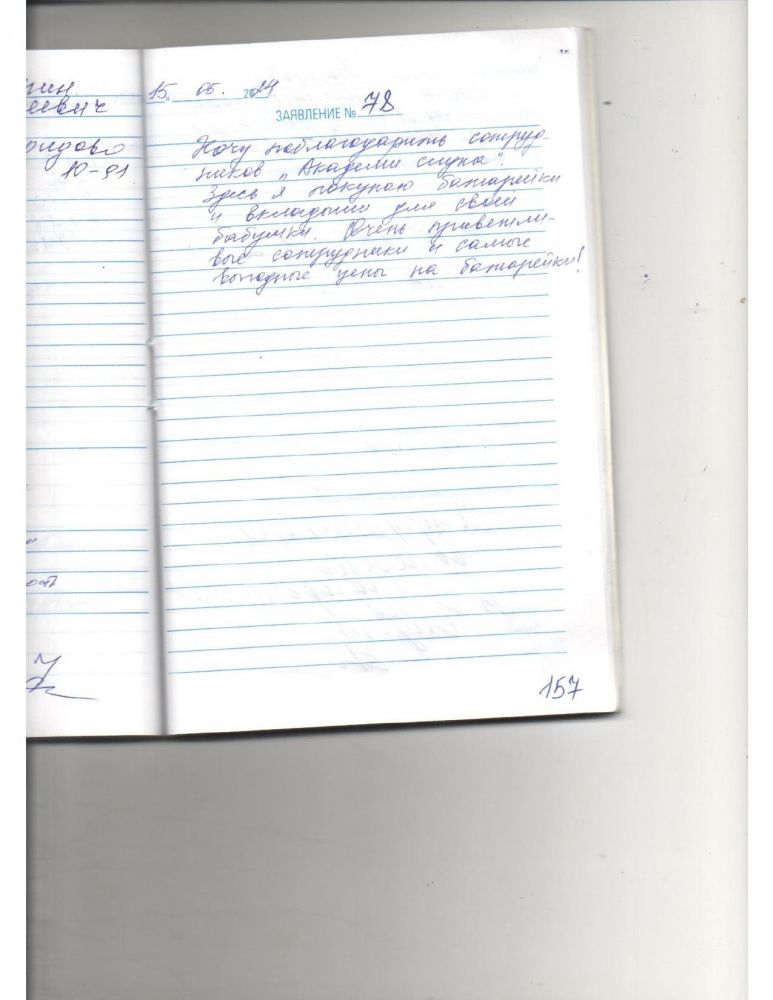 гин
еевич
ридово
10-91
ост
15 05. 2014
ЗАЯВЛЕНИЕ № 78
Хочу поблагодарить сотруд-
ников „Академи слуха".
Здесь я покупаю батарейки
и вкладыши для своей
бабушки. Очень приветли-
вые сотрудники и самые
выгодные цены на батарейки!
157